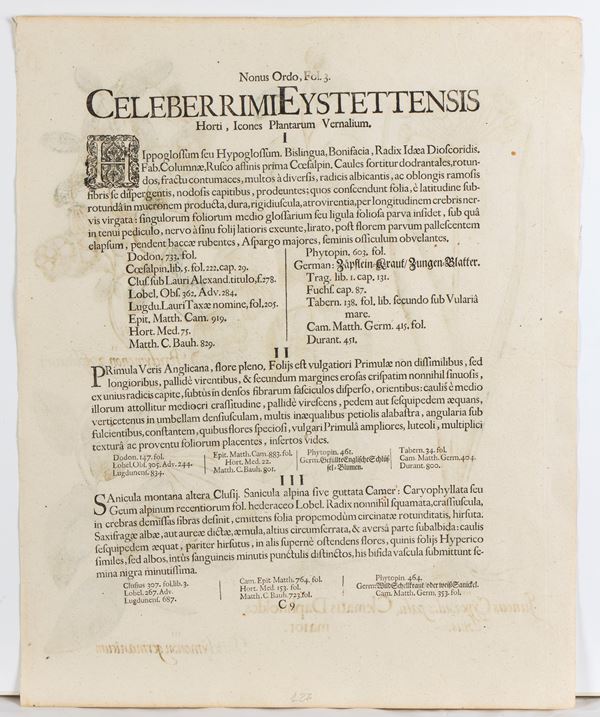 Nonus Ordo, Fol. 3.
CELEBERRIMI EYSTETTENSIS
Horti, Icones Plantarum Vernalium.
I
HIppoglossum seu Hypoglossum. Bislingua, Bonifacia, Radix Idæa Dioscoridis.
Fab. Columnæ, Rusco affinis prima Cœsalpin. Caules sortitur dodrantales, rotun-
dos, fractu contumaces, multos à diversis, radicis albicantis, ac oblongis ramosis
fibris se dispergentis, nodosis capitibus, prodeuntes: quos conscendunt folia, è latitudine sub-
rotundâ in mucronem producta, dura, rigidiuscula, atrovirentia, per longitudinem crebris ner-
vis virgata: singulorum foliorum medio glossarium seu ligula foliosa parva insidet, sub quâ
in tenui pediculo, nervo à sinu folij latioris exeunte, lirato, post florem parvum pallescentem
elapsum, pendent baccæ rubentes, Aspargo majores, seminis officulum obvelantes.
Dodon. 733. fol.
Cœsalpin. lib. 5. fol. 222. cap. 29.
Clus. sub Lauri Alexand. titulo, f. 278.
Lobel. Obs. 362. Adv. 284.
Lugdu. Lauri Taxæ nomine, fol. 205.
Epit. Matth. Cam. 919.
Hort. Med. 75.
Matth. C. Bauh. 829.
Phytopin. 603. fol.
German: Zäpflein-Kraut/Zungen-Blatter.
Trag. lib. 1. cap. 131.
Fuchs. cap. 87.
Tabern. 138. fol. lib. secundo sub Vularià
mare.
Cam. Matth. Germ. 415. fol.
Durant. 451.
II
PRimula Veris Anglicana, flore pleno. Folijs est vulgatiori Primulæ non dissimilibus, sed
longioribus, pallidè virentibus, & secundum margines erosas crispatim nonnihil sinuosis,
ex unius radicis capite, subtùs in densos fibrarum fasciculos disperso, orientibus: caulis è medio
illorum attollitur mediocri crassitudine, pallidè virescens, pedem aut sesquipedem æquans,
verticetenus in umbellam densiusculam, multis inæqualibus petiolis alabastra, angularia sub
fulcientibus, constantem, quibus flores speciosi, vulgari Primulâ ampliores, luteoli, multiplici
texturâ ac proventu foliorum placentes, insertos vides.
Dodon. 147. fol.
Lobel. Obs. 305. Adv. 244.
Lugdunens. 834.
Epit. Matth. Cam. 883. fol.
Hort. Med. 22.
Matth. C. Bauh. 801.
Phytopin. 461.
Germ: Gefüllte Englische Schlüs-
sel-Blumen.
Tabern. 34. fol.
Cam Matth. Germ. 404.
Durant. 800.
III
SAnicula montana altera Clusij. Sanicula alpina sive guttata Camer: Caryophyllata seu
Geum alpinum recentiorum fol. hederaceo Lobel. Radix nonnihil squamata, crassiuscula,
in crebras demissas fibras desinit, emittens folia propemodùm circinatæ rotunditatis, hirsuta.
Saxifragæ albæ, aut aureæ dictæ, æmula, altius circumserrata, & aversâ parte subalbida: caulis
sesquipedem æquat, pariter hirsutus, in alis supernè ostendens flores, quinis folijs Hyperico
similes, sed albos, intùs sanguineis minutis punctulis distinctos, his bifida vascula submittunt se-
mina nigra minutissima.
Clusius 307. fol. lib. 3.
Lobel. 267. Adv.
Lugdunens. 687.
Cam. Epit Matth. 764. fol.
Hort. Med. 153. fol.
Matth. C Bauh. 723. fol.
Phytopin. 464.
Germ: Wild Schellkraut/oder weiß Sanickel.
Cam. Matth. Germ. 353. fol.
C 9
127